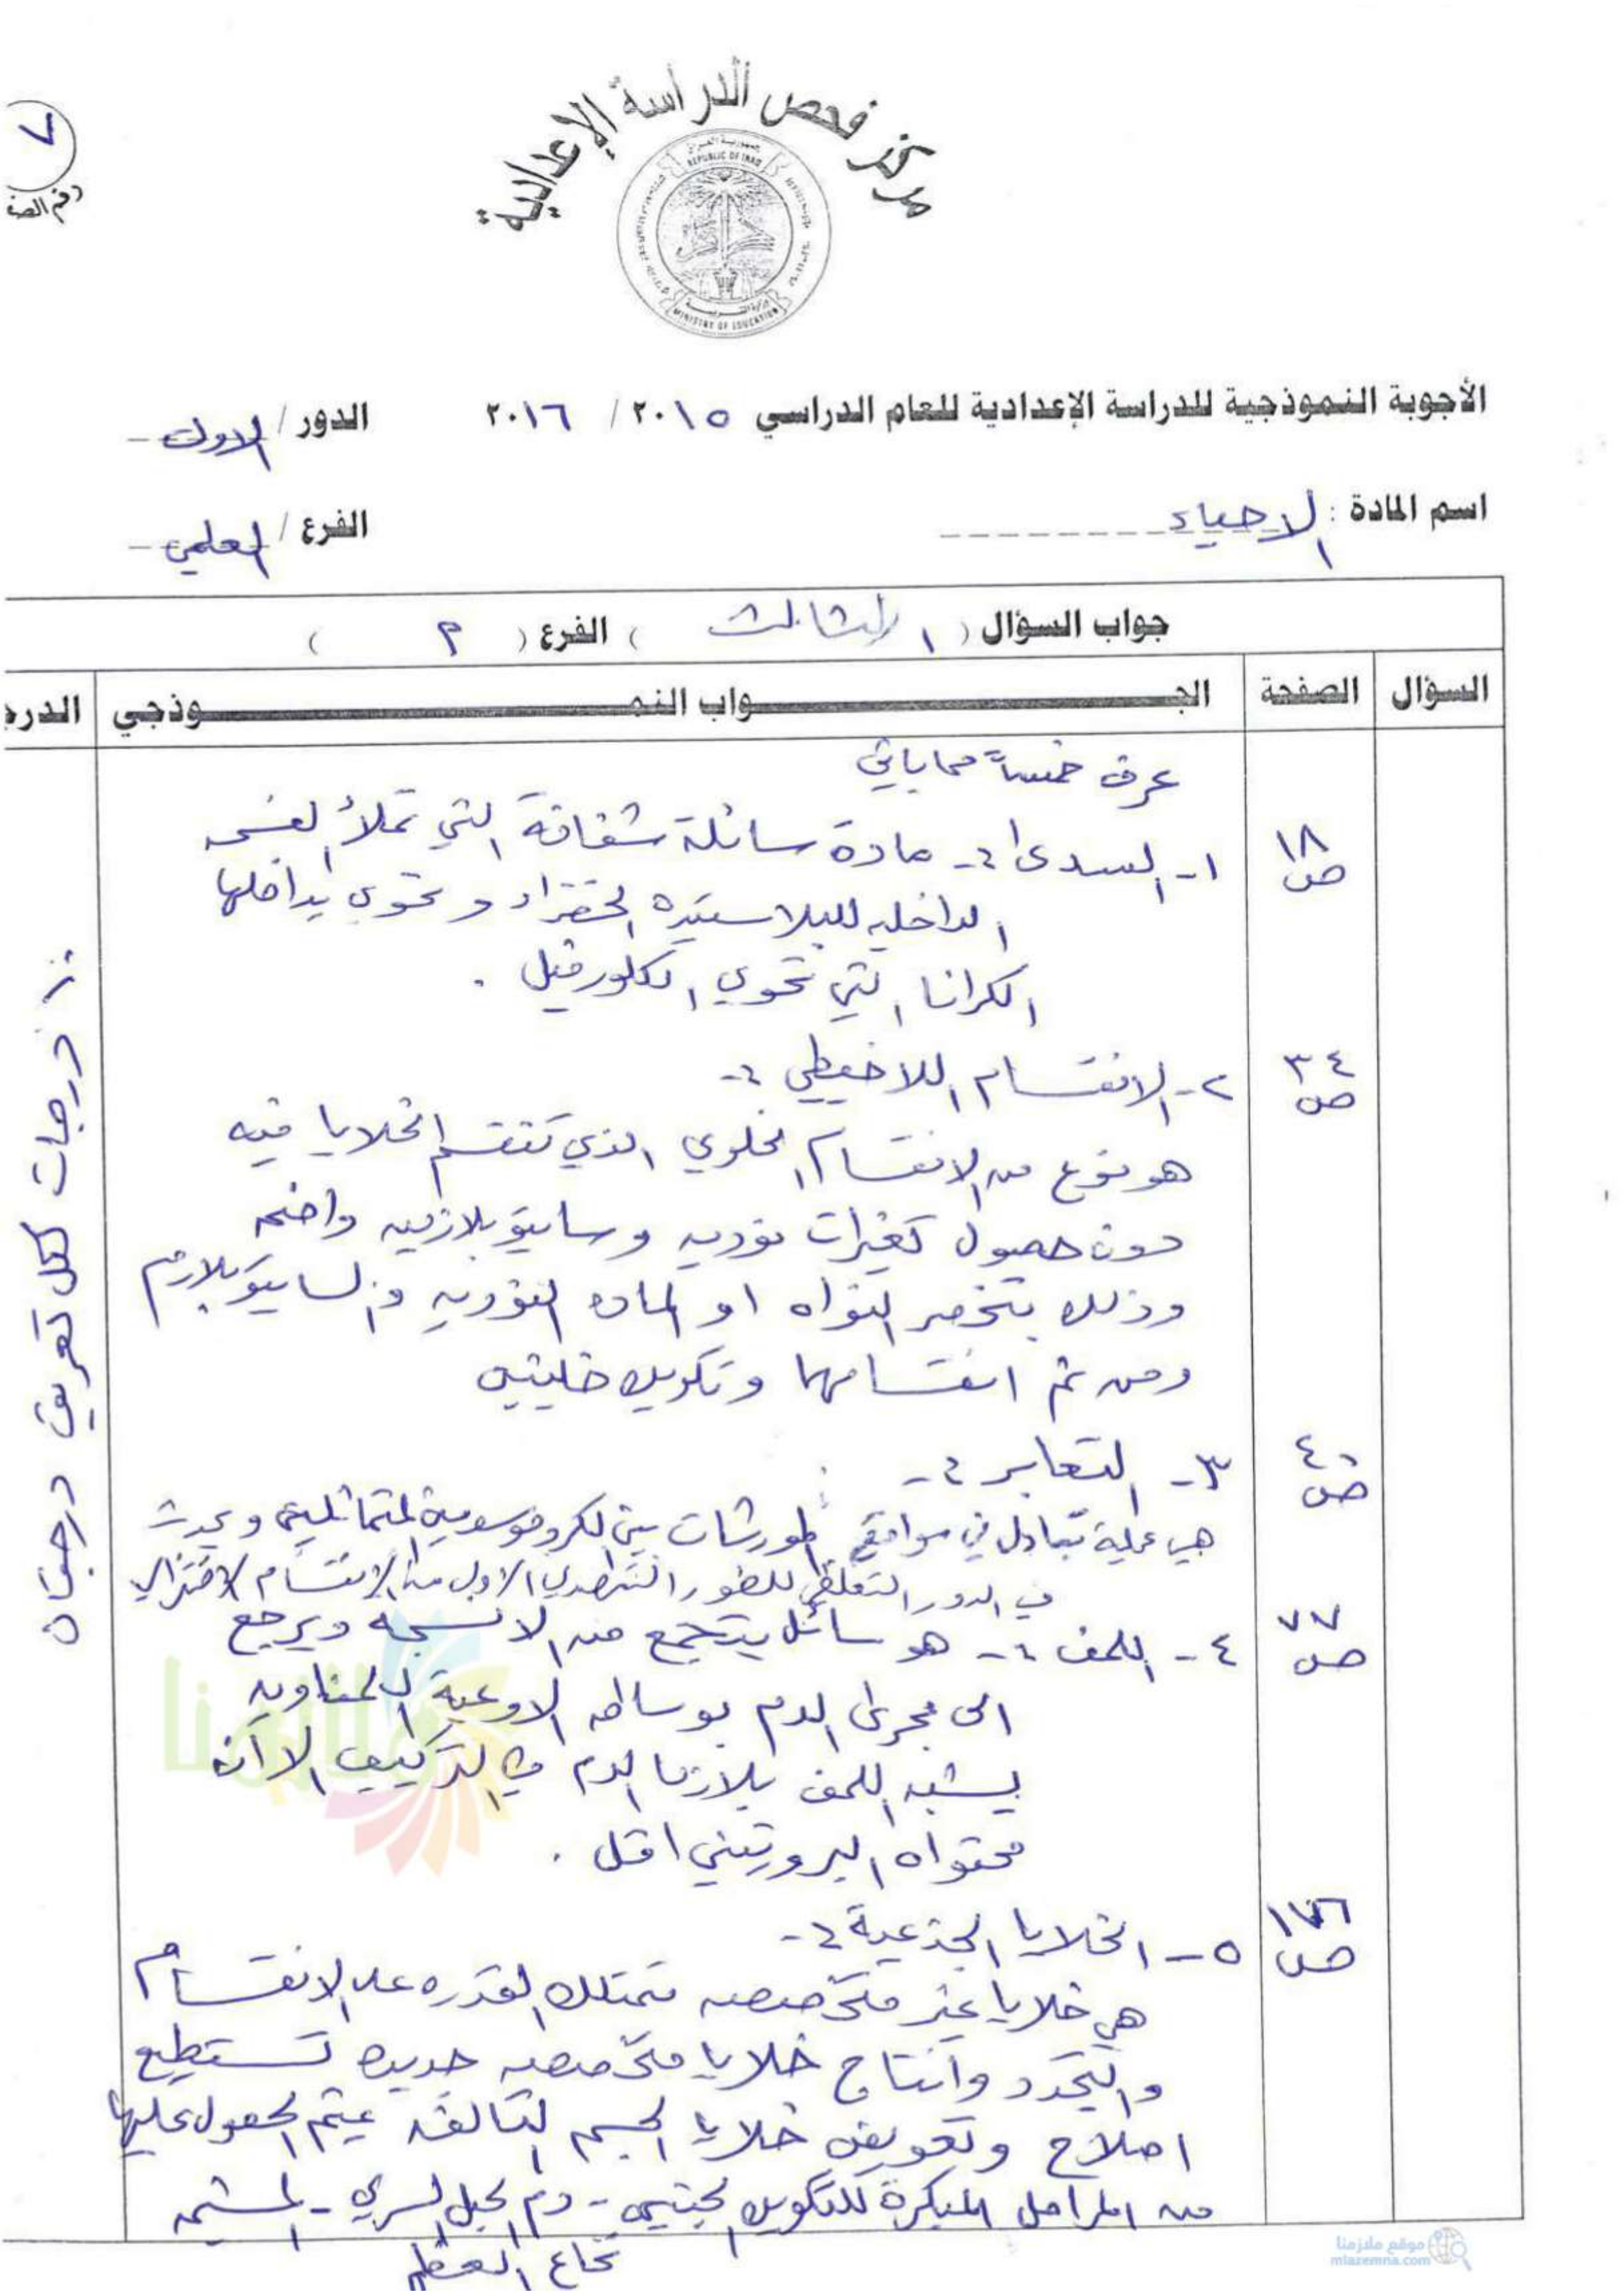 مركز فحص الدراسة الإعدادية
جمهورية العراق
REPUBLIC OF IRAQ
وزارة التربية
MINISTRY OF EDUCATION
٧
رقم الصف
الأجوبة النموذجية للدراسة الإعدادية للعام الدراسي ٢٠١٥ / ٢٠١٦ الدور / الاول
اسم المادة : الاحياء الفرع / العلمي
جواب السؤال ( الثالث ) الفرع ( ٢ )
السؤال الصفحة الجـــواب النمـــوذجي الدرج
عرف خمساً مما يأتي
ص ١٨ ١- السدى :- مادة سائلة شفافة التي تملأ الفسح
الداخليه للبلاستيده الخضراء وتحوي بداخلها
الكرانا التي تحوي الكلورفيل .
ص ٣٤ ٢- الانقسام اللاخيطي :-
هو نوع من الانقسام الخلوي الذي تنقسم الخلايا فيه
دون حصول تغيرات نوويه وسايتوبلازميه واضحه
وذلك بتخصر النواه او الماده النوويه والسايتوبلازم
ومن ثم انقسامها وتكوين خليتين
ص ٤٠ ٣- التعابر :-
هي عملية تبادل في مواقع المورثات بين الكروموسومين المتماثلين ويحدث
في الدور التغلظي للطور التمهيدي الاول من الانقسام الاختزالي
ص ٧٧ ٤- اللمف :- هو سائل يتجمع من الانسجه ويرجع
الى مجرى الدم بوساطه الاوعية اللمفاويه
يشبه اللمف بلازما الدم في التركيب الا أن
محتواه البروتيني اقل .
ص ١٧٦ ٥- الخلايا الجذعية :-
هي خلايا غير متخصصه تمتلك القدره على الانقسام
والتجدد وانتاج خلايا متخصصه جديده تستطيع
اصلاح وتعويض خلايا الجسم التالفه يتم الحصول عليها
من المراحل المبكرة للتكوين الجنيني - دم الحبل السري - المشيمه
نخاع العظم
١٠ درجات لكل تعريف درجتان
ملازمنا
موقع ملازمنا
mlazemna.com